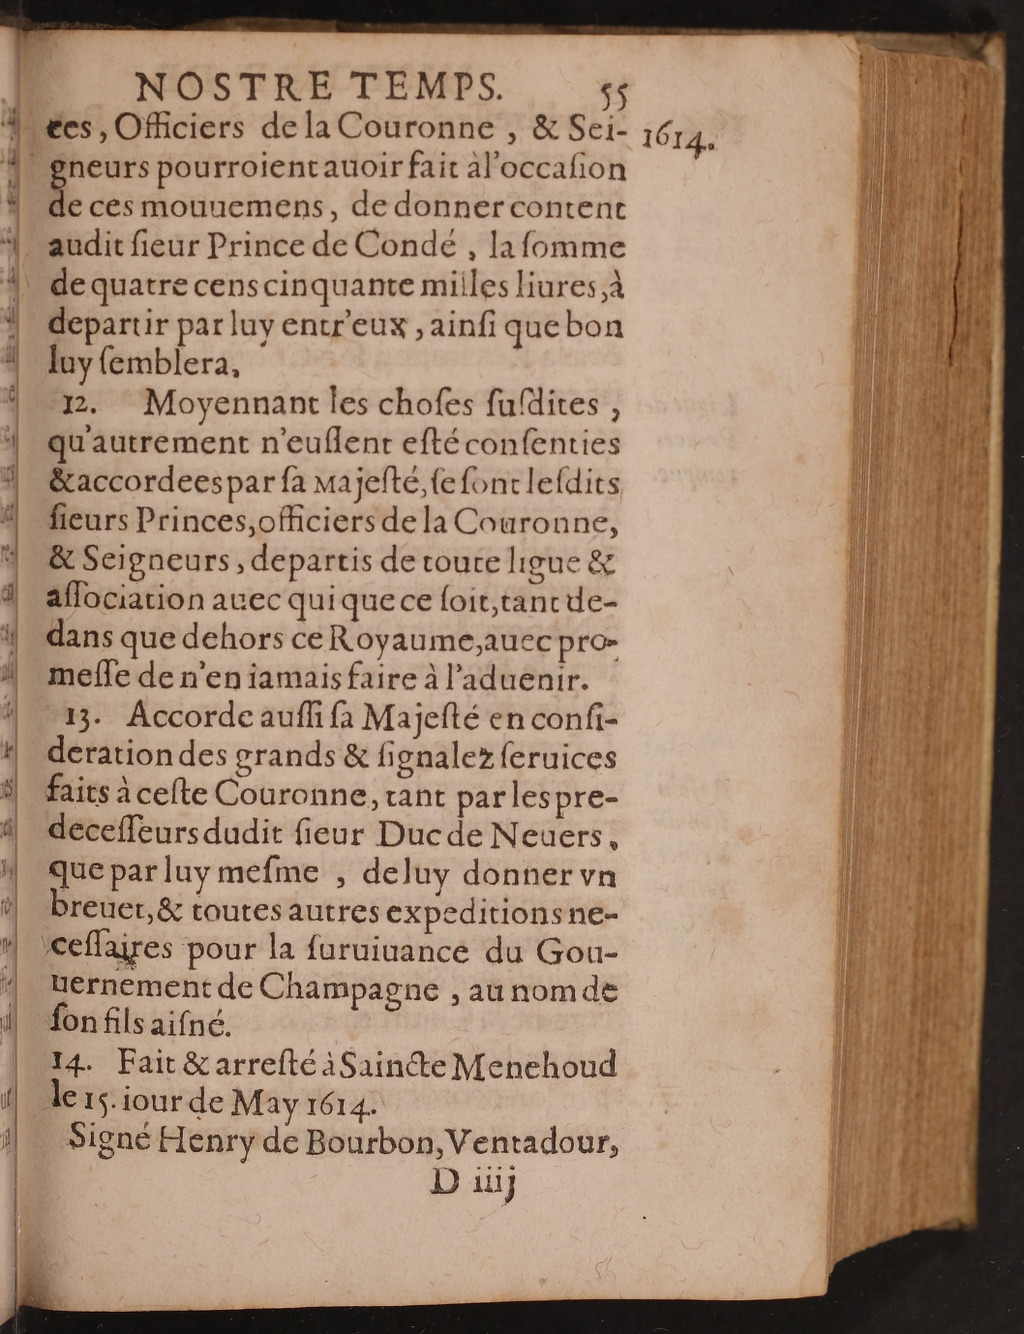 NOSTRE TEMPS. 55
ces, Officiers de la Couronne, & Sei- 1614.
gneurs pourroient auoir fait à l'occaſion
de ces mouuemens, de donner content
audit ſieur Prince de Condé, la ſomme
de quatre cens cinquante milles liures, à
departir par luy entr'eux, ainſi que bon
luy ſemblera,
12. Moyennant les choſes ſuſdites,
qu'autrement n'euſſent eſté conſenties
& accordees par ſa Majeſté, ſe ſont leſdits
ſieurs Princes, officiers de la Couronne,
& Seigneurs, departis de toute ligue &
aſſociation auec qui que ce ſoit, tant de-
dans que dehors ce Royaume, auec pro-
meſſe de n'en iamais faire à l'aduenir.
13. Accorde auſſi ſa Majeſté en conſi-
deration des grands & ſignalez ſeruices
faits à ceſte Couronne, tant par les pre-
deceſſeurs dudit ſieur Duc de Neuers,
que par luy meſme, de luy donner vn
breuet, & toutes autres expeditions ne-
ceſſaires pour la ſuruiuance du Gou-
uernement de Champagne, au nom de
ſon fils aiſné.
14. Fait & arreſté à Saincte Menehoud
le 15. iour de May 1614.
Signé Henry de Bourbon, Ventadour,
D iiij
55